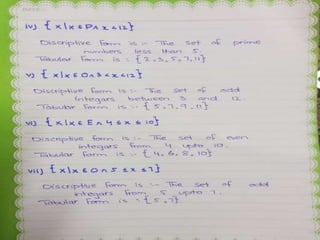 iv) { x | x ∈ P ∧ x < 12}
Discriptive form is :- The set of prime
numbers less than 5.
Tabular form is : { 2, 3, 5, 7, 11}
v) { x | x ∈ O ∧ 3 < x < 12}
Discriptive form is :- The set of odd
integars between 3 and 12.
Tabular form is :- { 5, 7, 9, 11}
vi) { x | x ∈ E ∧ 4 ≤ x ≤ 10}
Discriptive form is :- The set of even
integars from 4 upto 10.
Tabular form is :- { 4, 6, 8, 10}
vii) { x | x ∈ O ∧ 5 ≤ x ≤ 7}
Discriptive form is :- The set of odd
integars from 5 upto 7.
Tabular form is : { 5, 7}